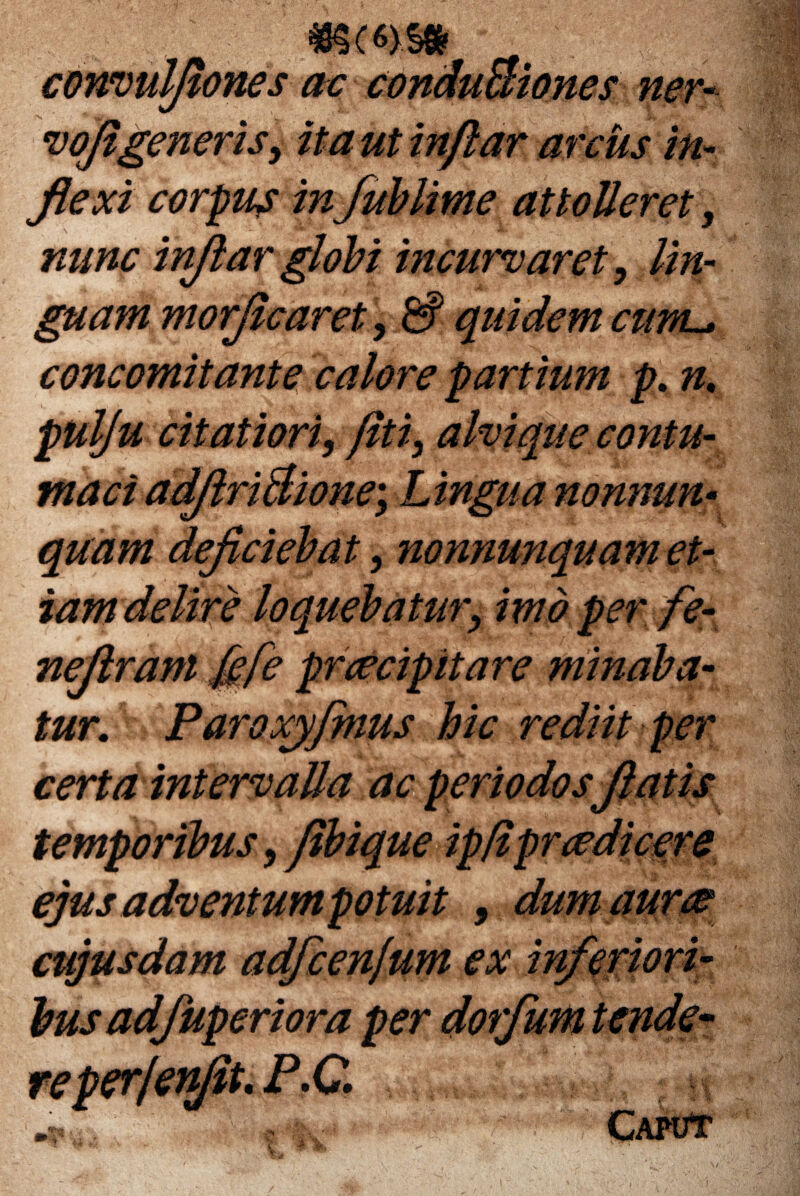 (6)
convulſiones ac conductiones ner-
voſi generis, ita ut inſtar arcûs in-
flexi corpus in ſublime attolleret,
nunc inſtar globi incurvaret, lin-
guam morſicaret, & quidem cum
concomitante calore partium p. n.
pulſu citatiori, ſiti, alvique contu-
maci adſtrictione; Lingua nonnun-
quam deficiebat, nonnunquam et-
iam delirè loquebatur, imò per fe-
neſtram ſeſe præcipitare minaba-
tur. Paroxyſmus hic rediit per
certa intervalla ac periodos ſtatis
temporibus, ſibique ipſi prædicere
ejus adventum potuit , dum auræ
cujusdam adſcenſum ex inferiori-
bus ad ſuperiora per dorſum tende-
re perſenſit. P.C.
CAPUT